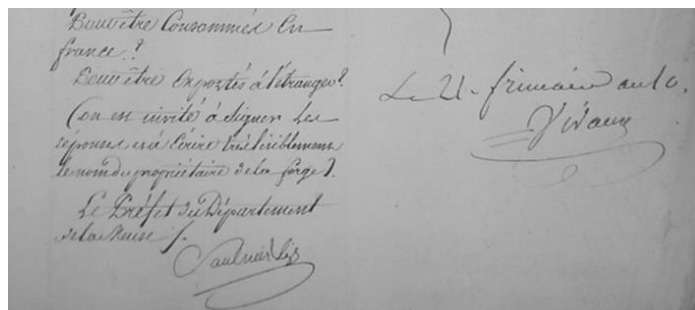 Pour être Consommés En
france ?
Pour être Exportés à l'étranger ?
(on est invité à Signer les
réponses et à Ecrire très lisiblement
le nom du propriétaire de la forge).
Le Préfet du Département
de la Meuse /.
Saulnier
Le 21. frimaire an 10.
Vivaux